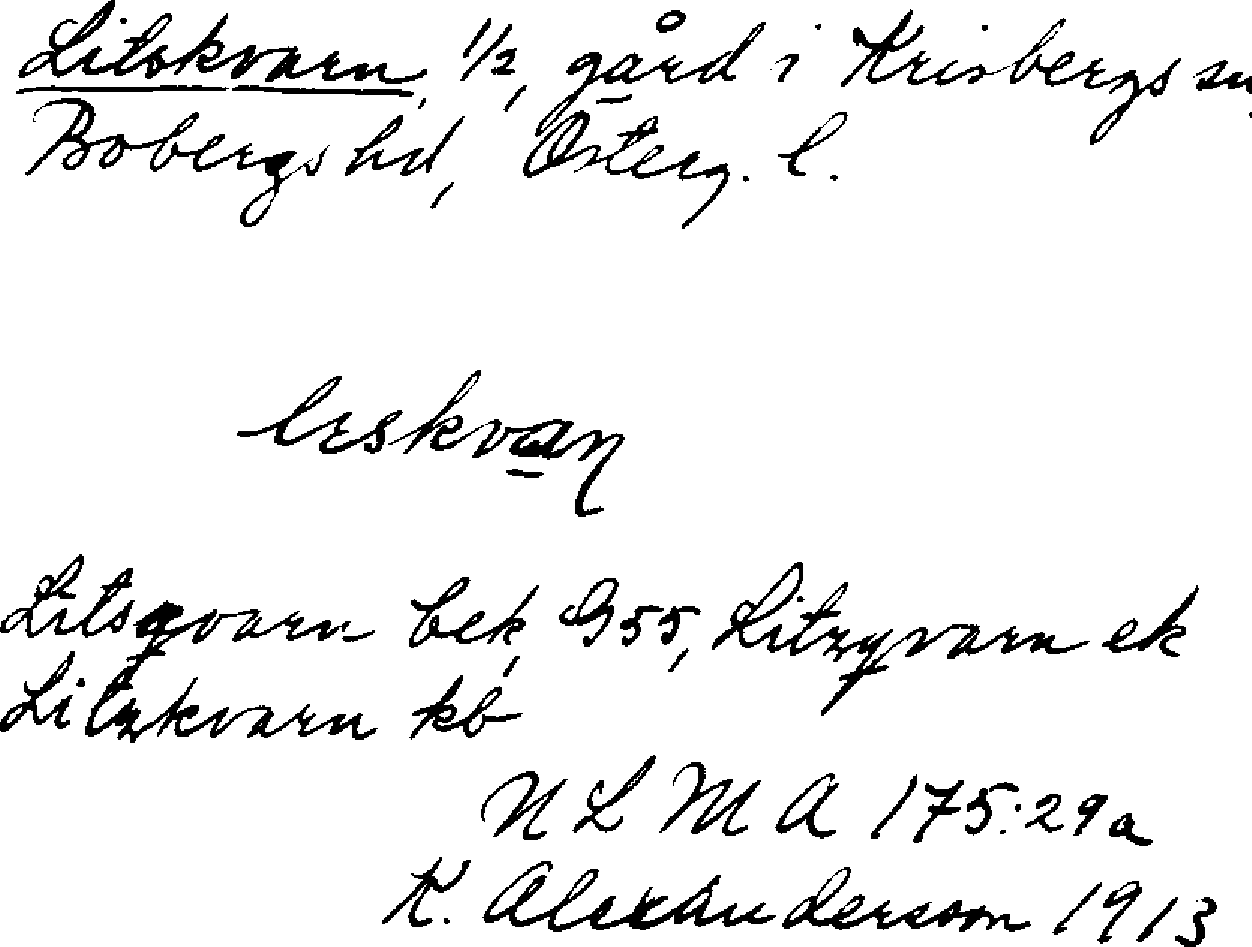 Litskvarn, 1/2, gård i Krisbergs sn,
Bobergs hd, Österg. l.
Litsqvarn bek, G55, Litzqvarn ek
Litzkvarn kb
N L M A 175:29a
K. Alexanderson 1913